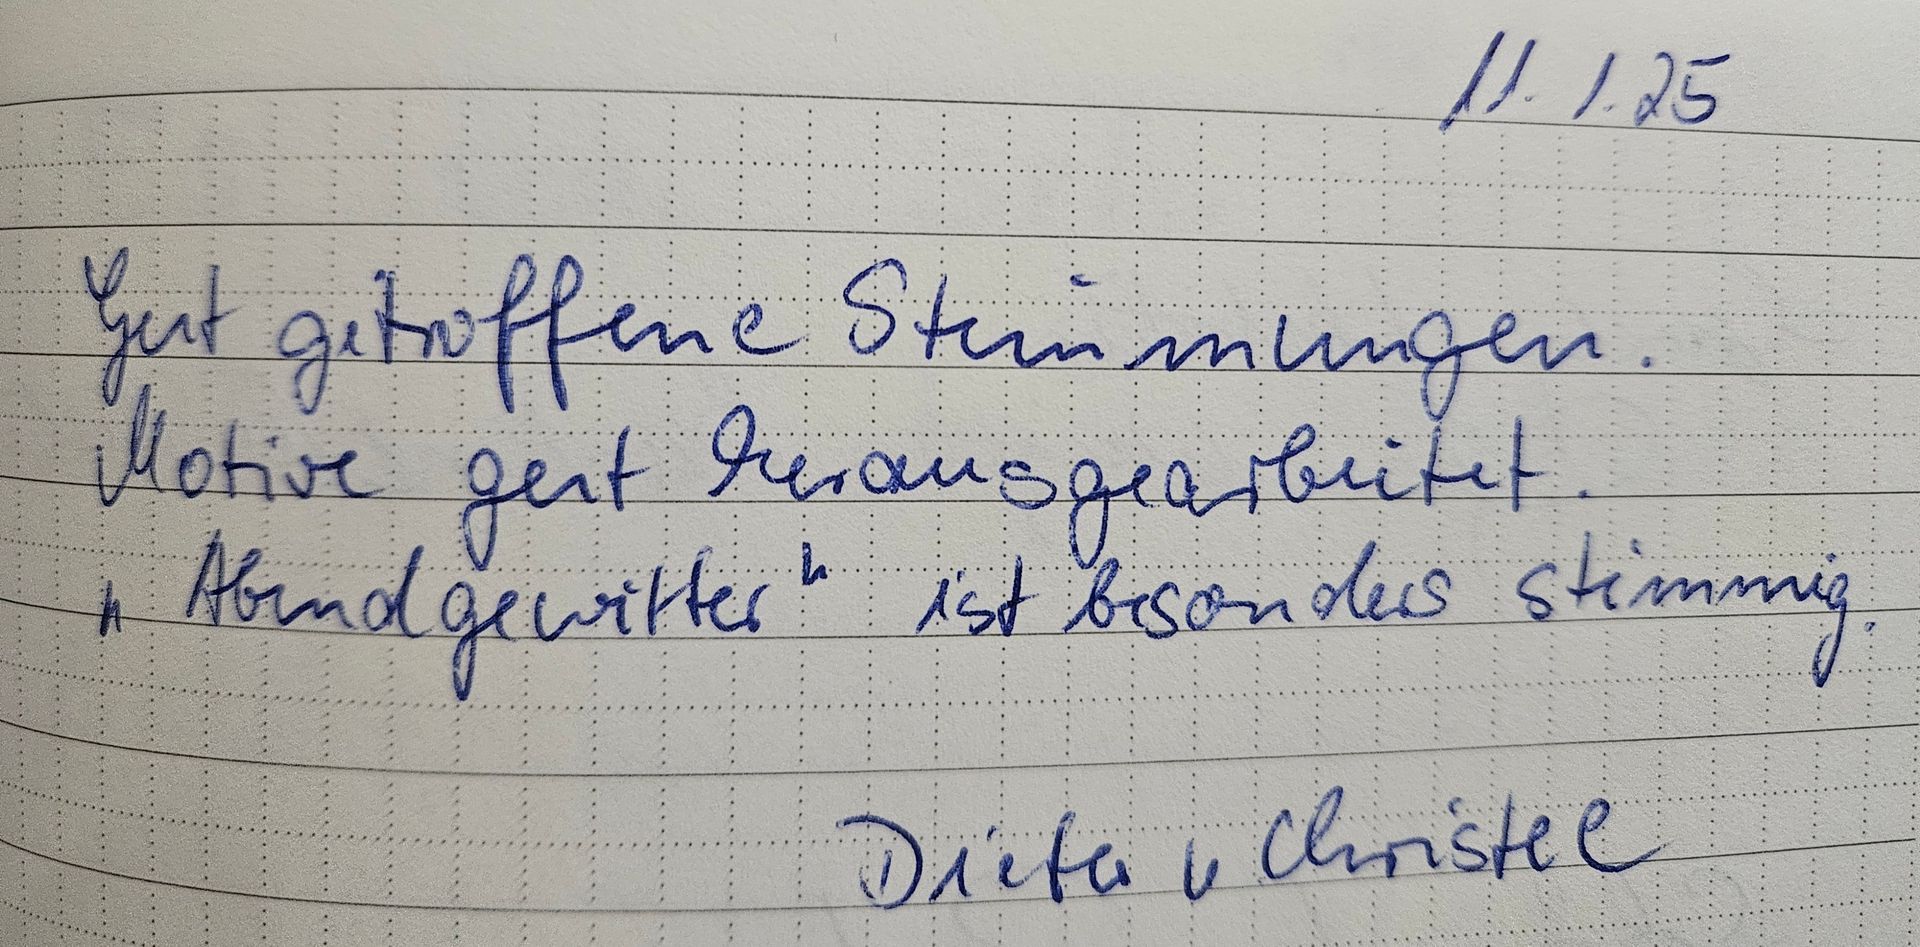 11.1.25
Gut getroffene Stimmungen.
Motive gut herausgearbeitet.
„Abendgewitter“ ist besonders stimmig.
Dieter u Christel